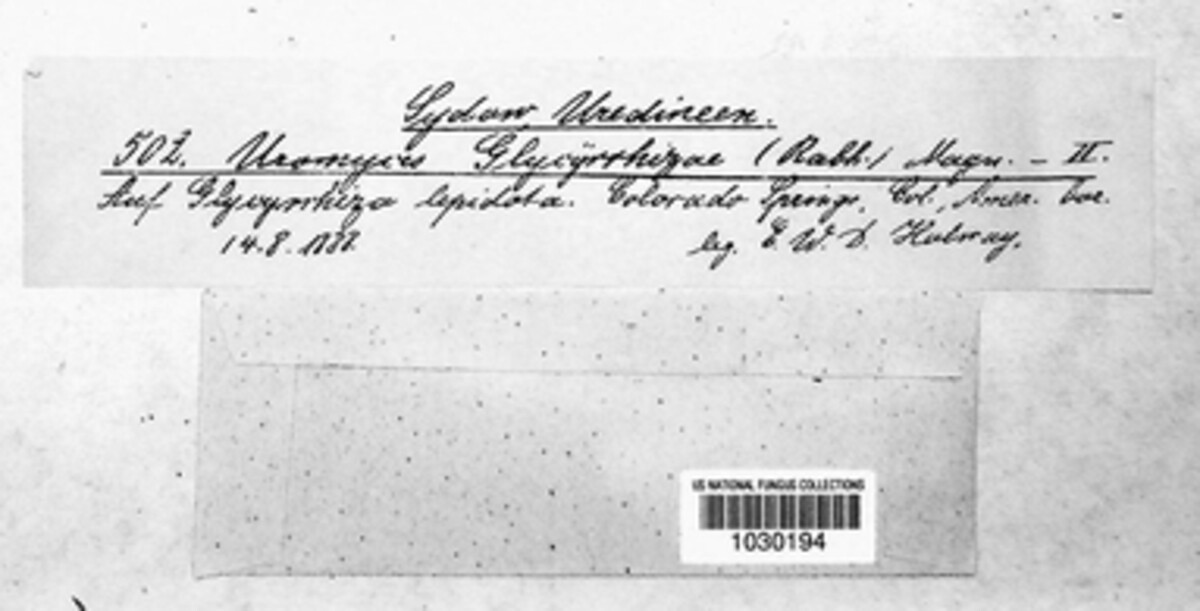 Sydow, Uredineen.
502. Uromyces Glycyrrhizae (Rabh.) Magn. – II.
Auf Glycyrrhiza lepidota. Colorado Springs, Col., Amer. bor.
14.8. 1888. leg. E. W. D. Holway.
US NATIONAL FUNGUS COLLECTIONS
1030194